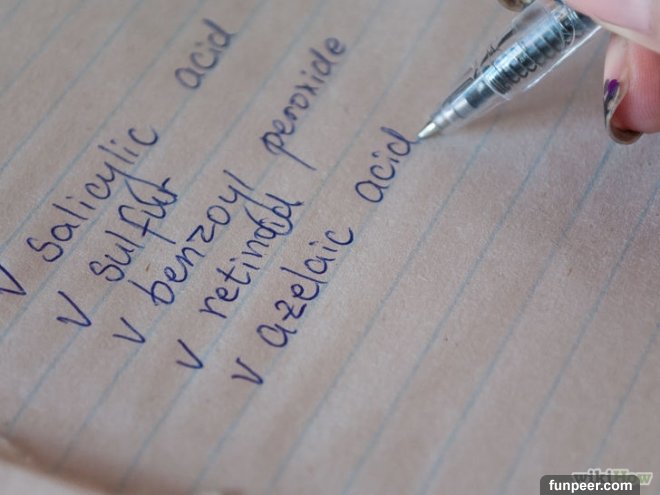 v salicylic acid
v sulfur
v benzoyl peroxide
v retinoid
v azelaic acid
wikiHow
funpeer.com